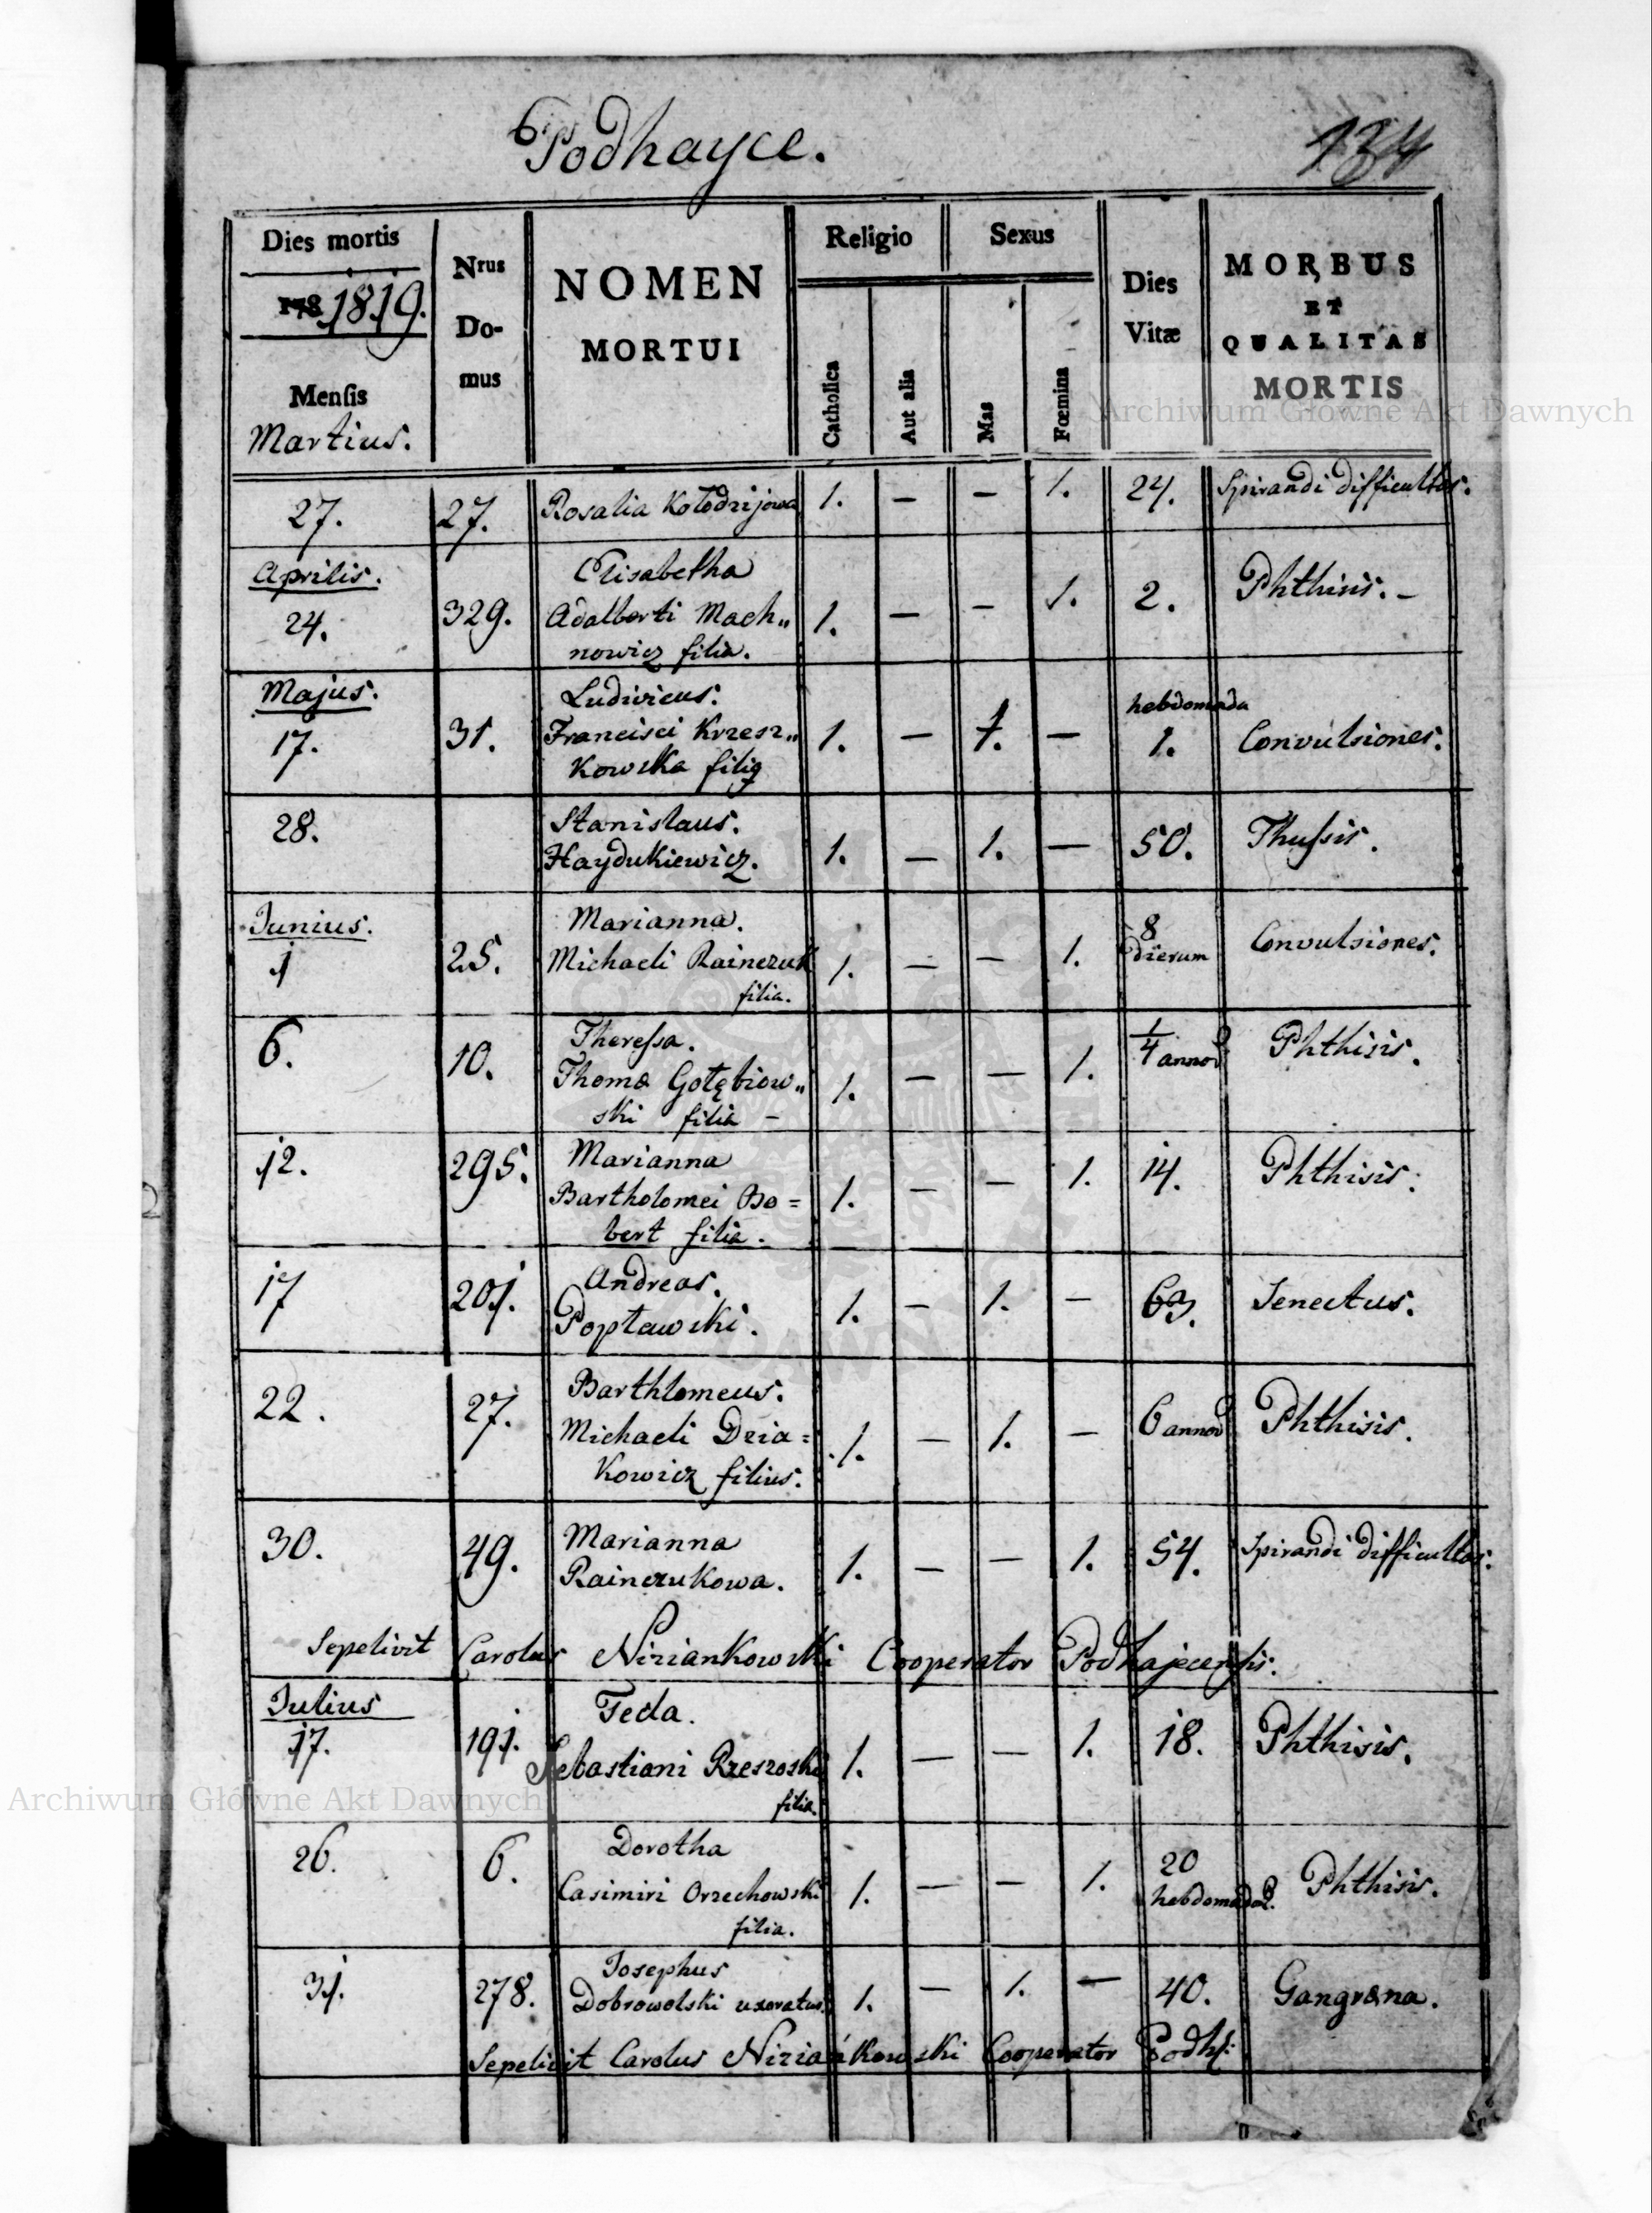 Podhayce.
134
Dies mortis
178 1819.
Mensis
Martius.
Nrus
Do-
mus
NOMEN
MORTUI
Religio
Catholica
Aut alia
Sexus
Mas
Fœmina
Dies
Vitæ
MORBUS
ET
QUALITAS
MORTIS
27. 27. Rosalia Kołodzijowa 1. – – 1. 24. Spirandi difficultas.
Aprilis.
24. 329. Elisabetha
Adalberti Mach„ 1. – – 1. 2. Phthisis. –
nowicz filia.
Majus.
17. 31. Ludivicus.
Francisci Krzesz„ 1. – 1. – hebdomada 1. Convulsiones.
Kowska filiq
28. Stanislaus.
Haydukiewicz. 1. – 1. – 50. Thussis.
Junius.
1 25. Marianna.
Michaeli Rainczuk 1. – – 1. 8 dierum Convulsiones.
filia.
6. 10. Theressa.
Thomæ Gołębiow„ 1. – – 1. 1/4 annor Phthisis.
ski filia –
12. 295. Marianna
Bartholomei Bo= 1. – – 1. 14. Phthisis.
bert filia.
17 201. Andreas.
Popławski. 1. – 1. – 63. Senectus.
22. 27. Barthlomeus.
Michaeli Dzia= 1. – 1. – 6 annor Phthisis.
Kowicz filius.
30. 49. Marianna
Rainczukowa. 1. – – 1. 54. Spirandi difficultas.
Sepelivit Carolus Niziankowski Cooperator Podhajecensis.
Julius
17. 191. Tecla.
Sebastiani Rzeszoski 1. – – 1. 18. Phthisis.
filia.
26. 6. Dorotha
Casimiri Orzechowski 1. – – 1. 20 hebdomadar. Phthisis.
filia.
31. 278. Josephus
Dobrowolski uxoratus. 1. – 1. – 40. Gangræna.
Sepelivit Carolus Niziańkowski Cooperator Podh:
Archiwum Główne Akt Dawnych
Archiwum Główne Akt Dawnych